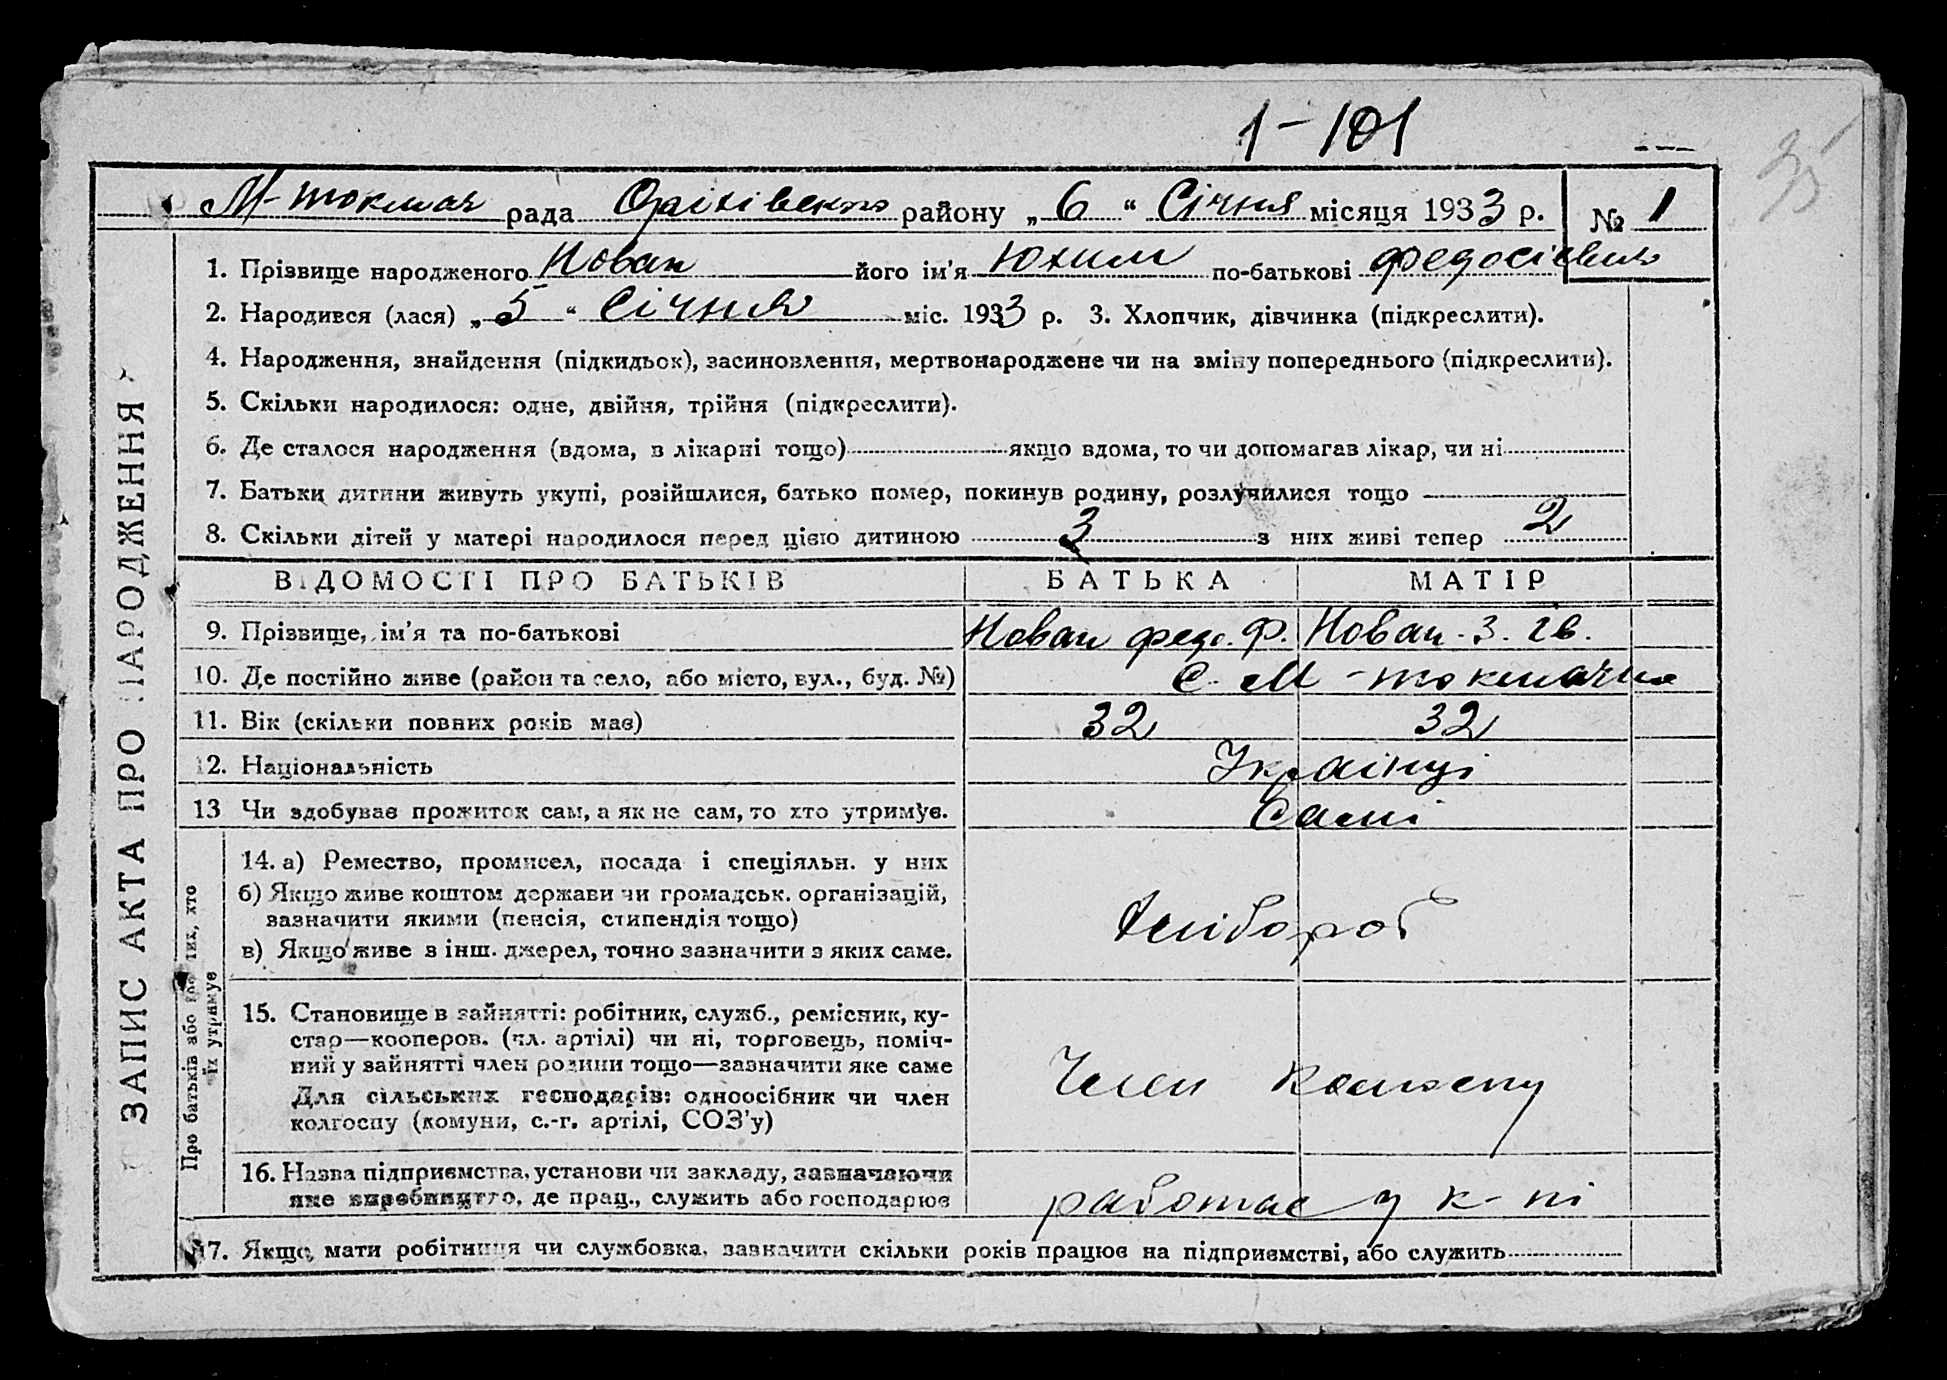 1-101
М-токмач рада Оріхівського району „6“ Січня місяця 1933 р. № 1
1. Прізвище народженого Новак його ім’я Юхим по-батькові Федосієвич
2. Народився (лася) „5“ Січня міс. 1933 р. 3. Хлопчик, дівчинка (підкреслити).
4. Народження, знайдення (підкидьок), засиновлення, мертвонароджене чи на зміну попереднього (підкреслити).
5. Скільки народилося: одне, двійня, трійня (підкреслити).
6. Де сталося народження (вдома, в лікарні тощо) якщо вдома, то чи допомагав лікар, чи ні
7. Батьки дитини живуть укупі, розійшлися, батько помер, покинув родину, розлучилися тощо
8. Скільки дітей у матері народилося перед цією дитиною 3 з них живі тепер 2
ВІДОМОСТІ ПРО БАТЬКІВ БАТЬКА МАТІР
9. Прізвище, ім’я та по-батькові Новак Федо. Ф. Новак. З. Ів.
10. Де постійно живе (район та село, або місто, вул., буд. №) С. М-токмачка
11. Вік (скільки повних років має) 32 32
12. Національність Українці
13 Чи здобуває прожиток сам, а як не сам, то хто утримує. Самі
14. а) Ремество, промисел, посада і спеціяльн. у них
б) Якщо живе коштом держави чи громадськ. організацій,
вазначити якими (пенсія, стипендія тощо)
хлібороб
в) Якщо живе з інш. джерел, точно зазначити з яких саме.
15. Становище в зайнятті: робітник, служб., ремісник, ку-
стар—кооперов. (чл. артілі) чи ні, торговець, поміч-
ний у зайнятті член родини тощо—зазначити яке саме
Член колгоспу
Для сільських господарів: одноосібник чи член
колгоспу (комуни, с.-г. артілі, СОЗ’у)
16. Назва підприємства, установи чи закладу, зазначаючи
яке виробництво, де прац., служить або господарює работає у к-пі
17. Якщо мати робітниця чи службовка, зазначити скільки років працює на підприємстві, або служить
ЗАПИС АКТА ПРО НАРОДЖЕННЯ
Про батьків або тих, хто
їх утримує